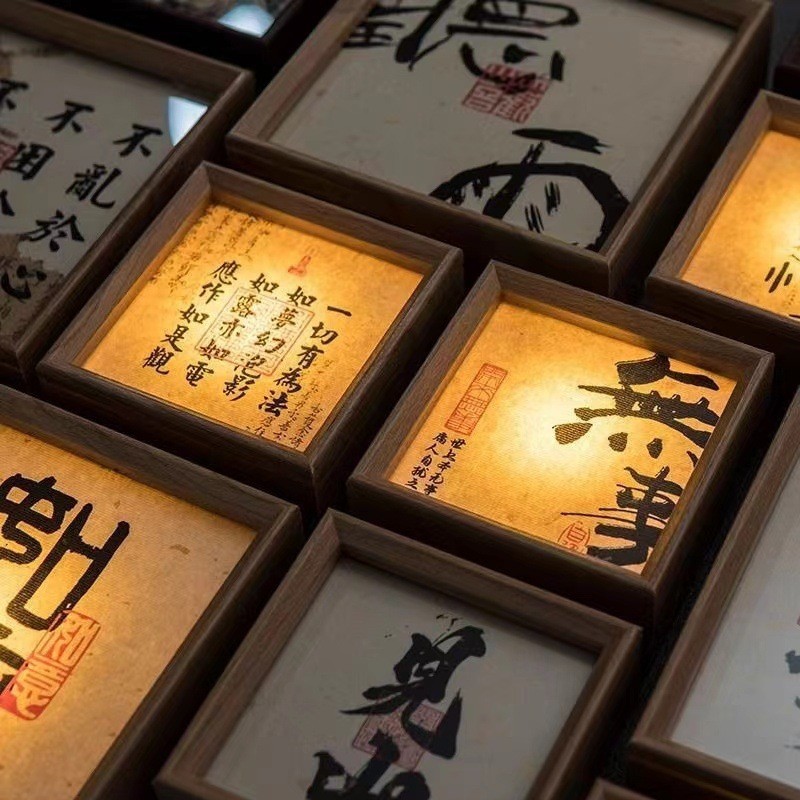 不亂於心
不困
不
聽雨
一切有為法
如夢幻泡影
如露亦如電
應作如是觀
無事
世上本无事
庸人自扰之
如意
見山